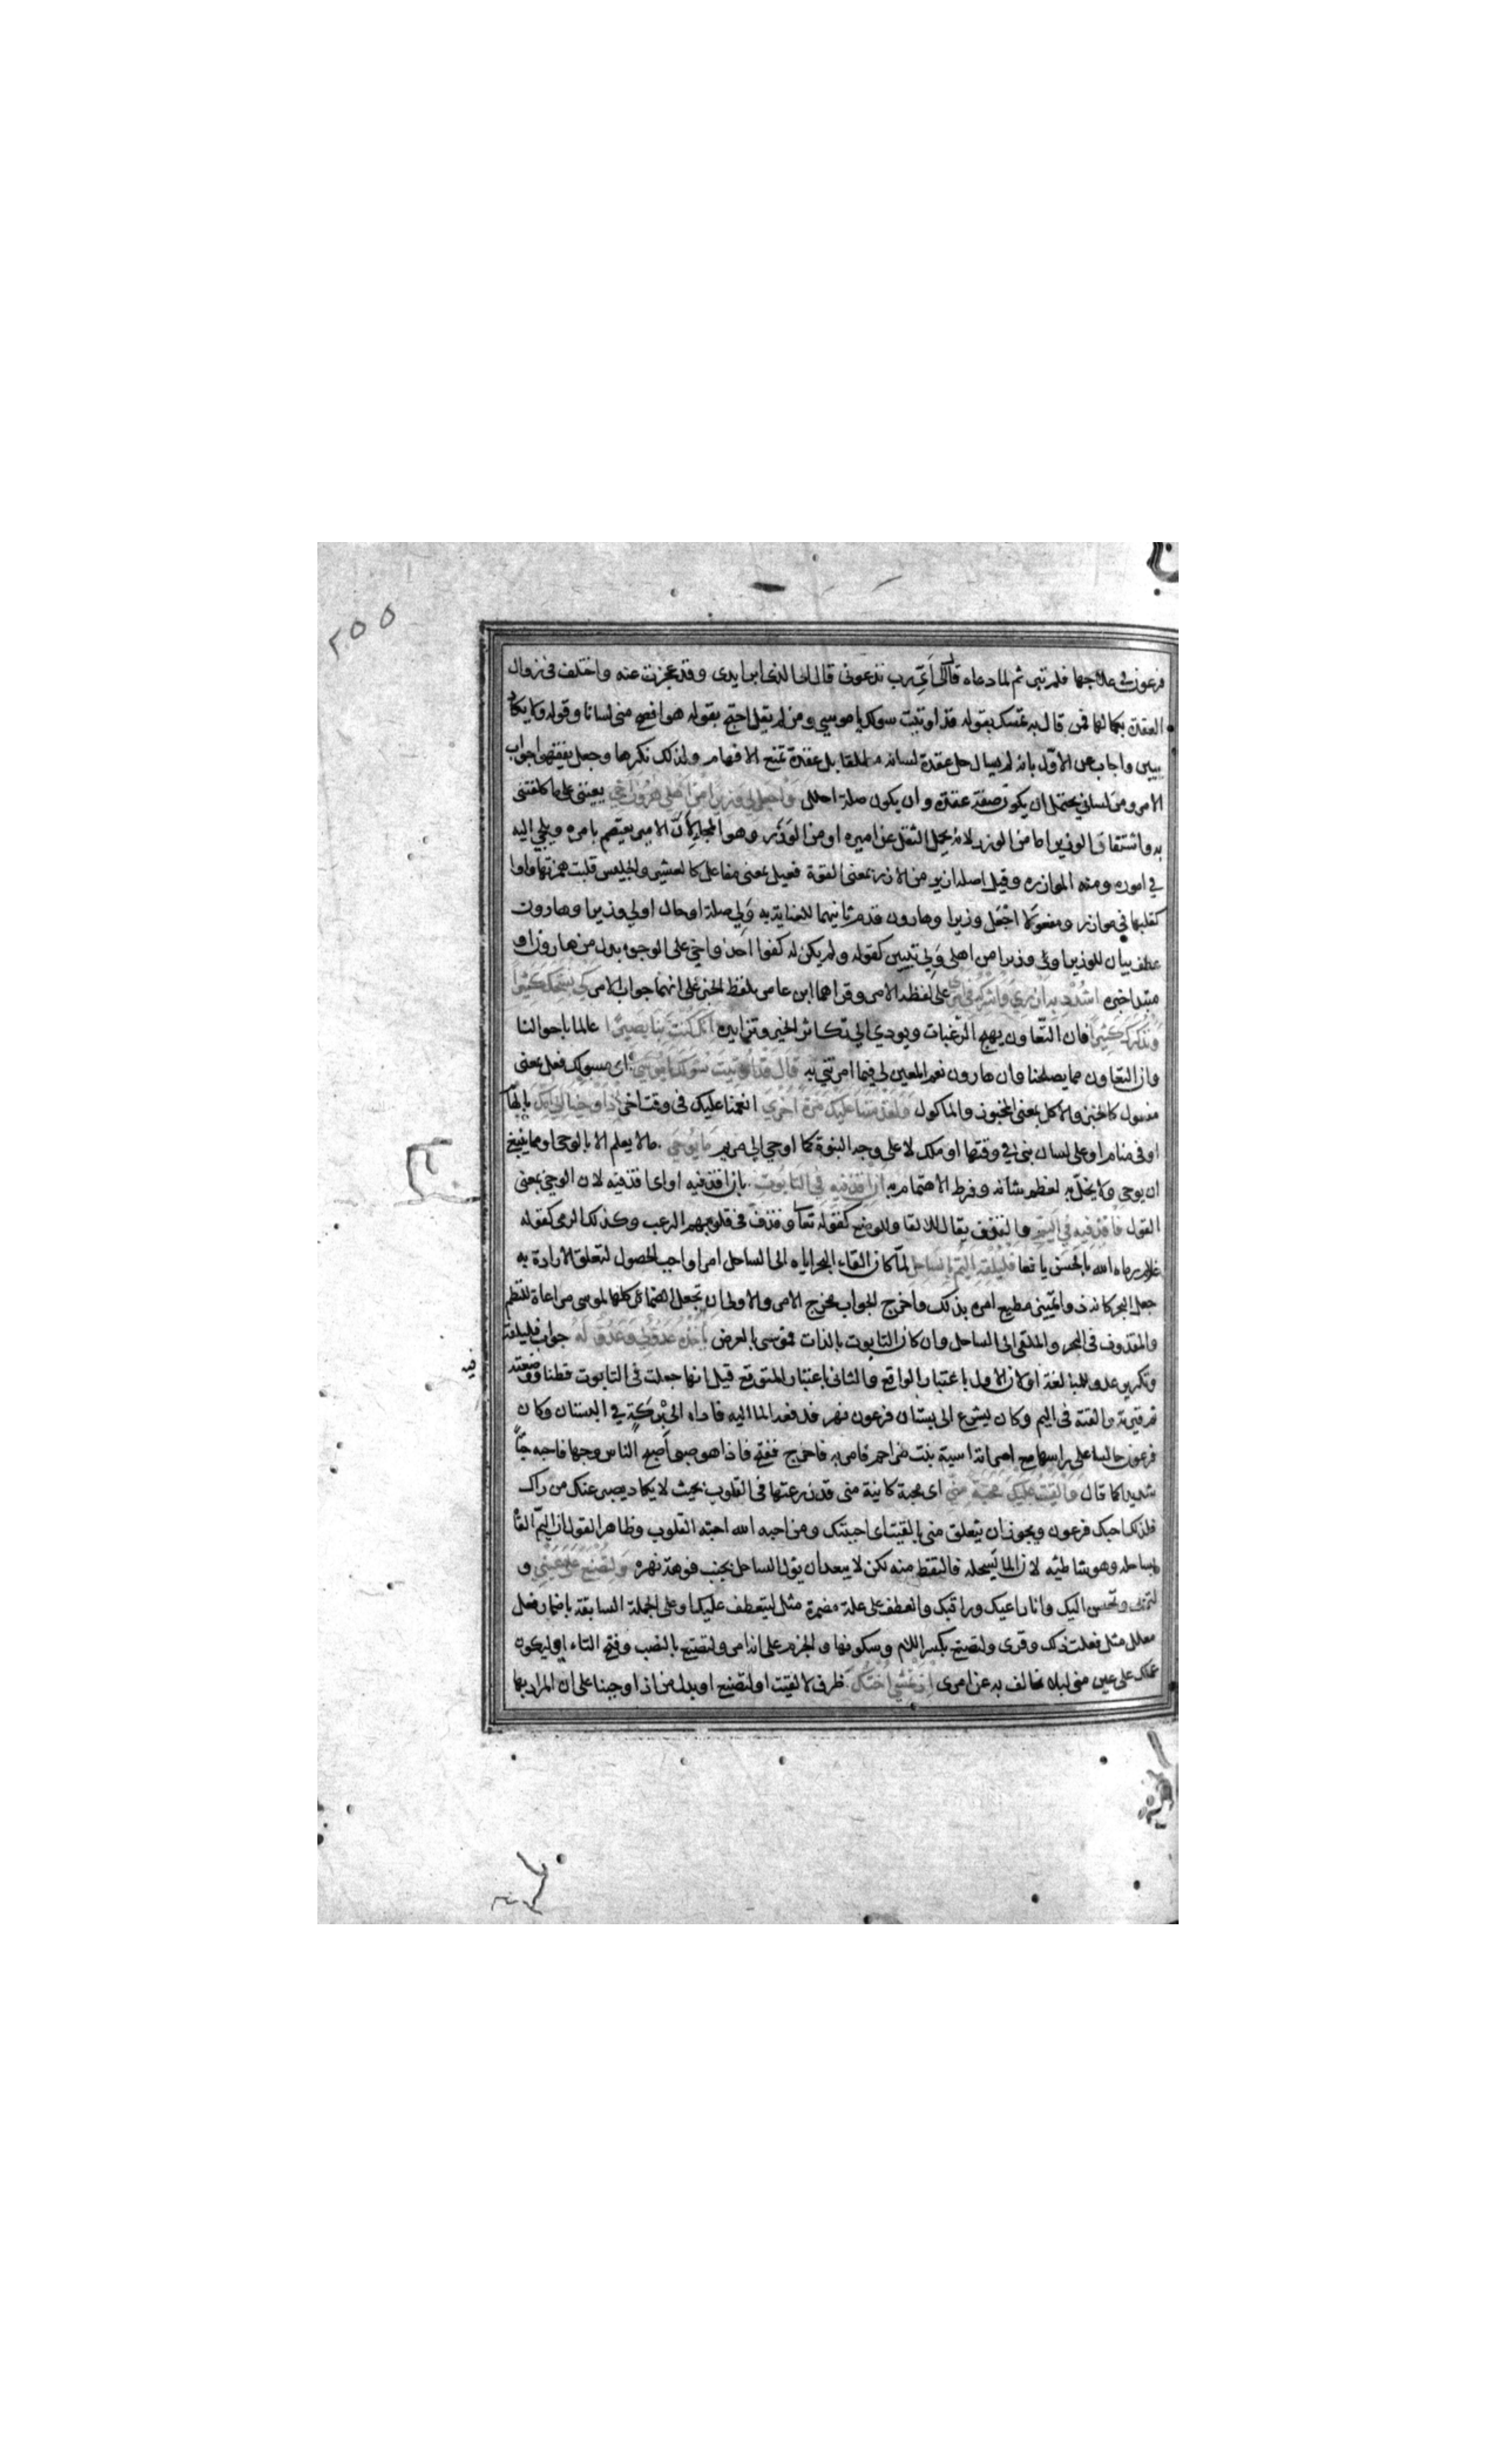 ٢٥٥
فرعون في علاجها فلم تبرى ثم لما دعاه قال الى اي رب تدعونى قال الى الذى ابرا يدى وقد عجزت عنه واختلف فى زوال
العقدة بكمالها فمن قال به تمسك بقوله قد اوتيت سولك يا موسى ومن لم يقل احتج بقوله هو افصح منى لسانا وقوله ولا يكاد
يبين واجاب عن الاول بانه لم يسال حل عقدة لسانه مطلقا بل عقدة تمنع الافهام ولذلك نكرها وجعل يفقهوا جواب
الامر ومن لسانى يحتمل ان يكون صفة عقدة وان يكون صلة احلل وَاجْعَل لِي وَزِيرًا مِن اَهْلِي هٰرُونَ اَخِي يعيننى على ما كلفتنى
به واشتقاق الوزير اما من الوزر لانه يحمل الثقل عن اميره او من الوَزَر وهو الملجا لان الامير يعتصم بامره ويلجي اليه
في اموره ومنه الموازره وقيل اصله ازير من الازر بمعنى القوة فعيل بمعنى مفاعل كالعشير والجليس قلبت همزتها واوا
كقلبها في موازر ومفعولا اجْعَل وزيرا وهارون قدم ثانيهما للعناية به ولي صلة او حال او لي وزيرا وهارون
عطف بيان للوزير او لى وزيرا من اهلى ولي تبيين كقوله ولم يكن له كفوا احد واخي على الوجوه بدل من هارون او
مبتدا خبره اشْدُدْ بِهِ اَزْرِي وَاَشْرِكْهُ فِي اَمْرِي على لفظ الامر وقراهما ابن عامر بلفظ الخبر على انهما جواب الامر كَيْ نُسَبِّحَكَ كَثِيرًا
وَنَذْكُرَكَ كَثِيرًا فان التعاون يهيج الرغبات ويودي الى تكاثر الخير وتزايده اِنَّكَ كُنْتَ بِنَا بَصِيرًا عالما باحوالنا
وان التعاون مما يصلحنا وان هارون نعم المعين لى فيما امرتنى به قَالَ قَدْ اُوتِيتَ سُؤلَكَ يَا مُوسَى اى مسولك فعل بمعنى
مفعول كالخبز والاكل بمعنى المخبوز والماكول وَلَقَدْ مَنَنَّا عَلَيْكَ مَرَّةً اُخْرَى انعمنا عليك فى وقت اخر اِذْ اَوْحَيْنَا اِلَى اُمِّكَ بالهام
او فى منام او على لسان نبى في وقتها او ملك لا على وجه النبوة كما اوحي الى مريم مَا يُوحَى ما لا يعلم الا بالوحى او مما ينبغى
ان يوحى ولا يخل به لعظم شانه وفرط الاهتمام به اَنِ اقْذِفِيهِ فِي التَّابُوتِ بان اقذفيه او اى اقذفيه لان الوحى بمعنى
القول فَاقْذِفِيهِ فِي الْيَمِّ والقذف يقال للالقا وللوضع كقوله تعا وقذف فى قلوبهم الرعب وكذلك الرمى كقوله
غلام رماه الله بالحسن يافعا فَلْيُلْقِهِ الْيَمُّ بِالسَّاحِلِ لما كان القاء البحر اياه الى الساحل امرا واجب الحصول لتعلق الارادة به
جعل البحر كانه ذو تمييز مطيع امره بذلك واخرج الجواب مخرج الامر والاولى ان تجعل الضمائر كلها لموسى مراعاة للنظم
والمقذوف فى البحر والملقى الى الساحل وان كان التابوت بالذات فموسى بالعرض يَأْخُذْهُ عَدُوٌّ لِي وَعَدُوٌّ لَهُ جواب فليلقه
وتكرير عدو للمبالغة او لان الاول باعتبار الواقع والثانى باعتبار المتوقع قيل انها جعلت فى التابوت قطنا ووضعته
فيه
ثم قيرته والقته فى اليم وكان يشرع الى بستان فرعون نهر فدفعه الما اليه فاداه الى بركة في البستان وكان
فرعون جالسا على راسها مع امراته اسية بنت مزاحم فامر به فاخرج ففتح فاذا هو صبى اصبح الناس وجها فاحبه حبا
شديدا كما قال وَاَلْقَيْتُ عَلَيْكَ مَحَبَّةً مِنِّي اى محبة كاينة منى قد زرعتها فى القلوب بحيث لا يكاد يصبر عنك من راك
فلذلك احبك فرعون ويجوز ان يتعلق منى بالقيت اى احببتك ومن احبه الله احبته القلوب وظاهر القول ان اليم القا
بساحله وهو شاطئه لان الما يسحله فالتقط منه لكن لا يبعد ان يول الساحل بجنب فوهة نهره وَلِتُصْنَعَ عَلَى عَيْنِي و
لتربى وتحسن اليك وانا راعيك وراقبك والعطف على علة مضمرة مثل ليتعطف عليك او على الجملة السابقة باضمار فعل
معلل مثل فعلت ذلك وقرى ولتصنع بكسر اللام وسكونها والجزم على انه امر ولتصنع بالنصب وفتح التاء اى وليكون
عملك على عين منى ليلا تخالف به عن امرى اِذْ تَمْشِي اُخْتُكَ ظرف لالقيت او لتصنع او بدل من اذ اوحينا على ان المراد بها